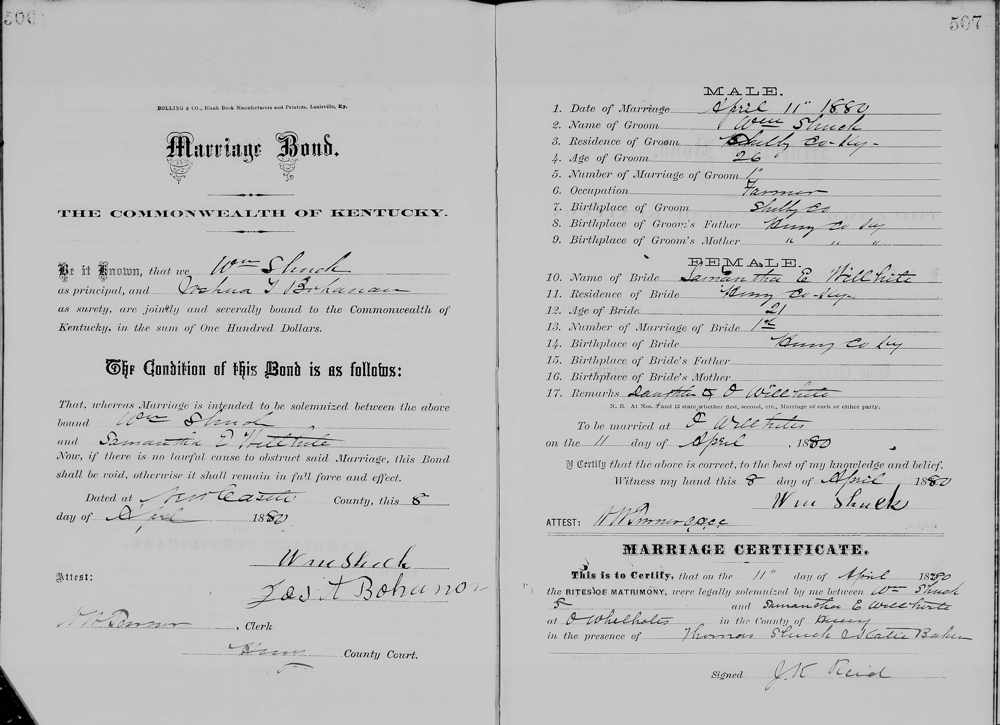 506
BOLLING & CO., Blank Book Manufacturers and Printers, Louisville, Ky.
Marriage Bond.
THE COMMONWEALTH OF KENTUCKY.
Be it Known, that we Wm Shuck
as principal, and Joshua T Bohanan
as surety, are jointly and severally bound to the Commonwealth of
Kentucky, in the sum of One Hundred Dollars.
The Condition of this Bond is as follows:
That, whereas Marriage is intended to be solemnized between the above
bound Wm Shuck
and Samantha E Willhite
Now, if there is no lawful cause to obstruct said Marriage, this Bond
shall be void, otherwise it shall remain in full force and effect.
Dated at New Castle County, this 8
day of April 1880
Wm Shuck
Jos T Bohannon
Attest:
, Clerk
Henry County Court.
507
MALE.
1. Date of Marriage April 11" 1880
2. Name of Groom Wm Shuck
3. Residence of Groom Shelby Co-Ky-
4. Age of Groom 26
5. Number of Marriage of Groom 1"
6. Occupation Farmer
7. Birthplace of Groom Shelby Co
8. Birthplace of Groom's Father Henry Co Ky
9. Birthplace of Groom's Mother " " "
FEMALE.
10. Name of Bride Samantha E Willhite
11. Residence of Bride Henry Co-Ky-
12. Age of Bride 21
13. Number of Marriage of Bride 1st
14. Birthplace of Bride Henry Co Ky
15. Birthplace of Bride's Father
16. Birthplace of Bride's Mother
17. Remarks Daughter of O Willhite
N. B. At Nos. 5 and 13 state whether first, second, etc., Marriage of each or either party.
To be married at O Willhites
on the 11 day of April , 1880
I Certify that the above is correct, to the best of my knowledge and belief.
Witness my hand this 8 day of April 1880
Wm Shuck
ATTEST:
MARRIAGE CERTIFICATE.
This is to Certify, that on the 11" day of April 1880
the RITES OF MATRIMONY, were legally solemnized by me between Wm Shuck
and Samantha E Willhite
at O Whilhites in the County of Henry
in the presence of Thomas Shuck & Katie Baker
Signed J. K Reid